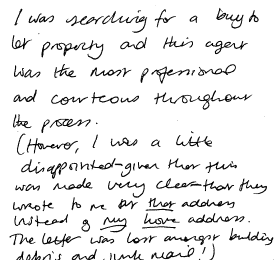 I was searching for a buy to
let property and this agent
was the most professional
and courteous throughout
the process.
(However, I was a little
disappointed - given that this
was made very clear - that they
wrote to me at that address
instead of my home address.
The letter was lost amongst building
debris and junk mail!)